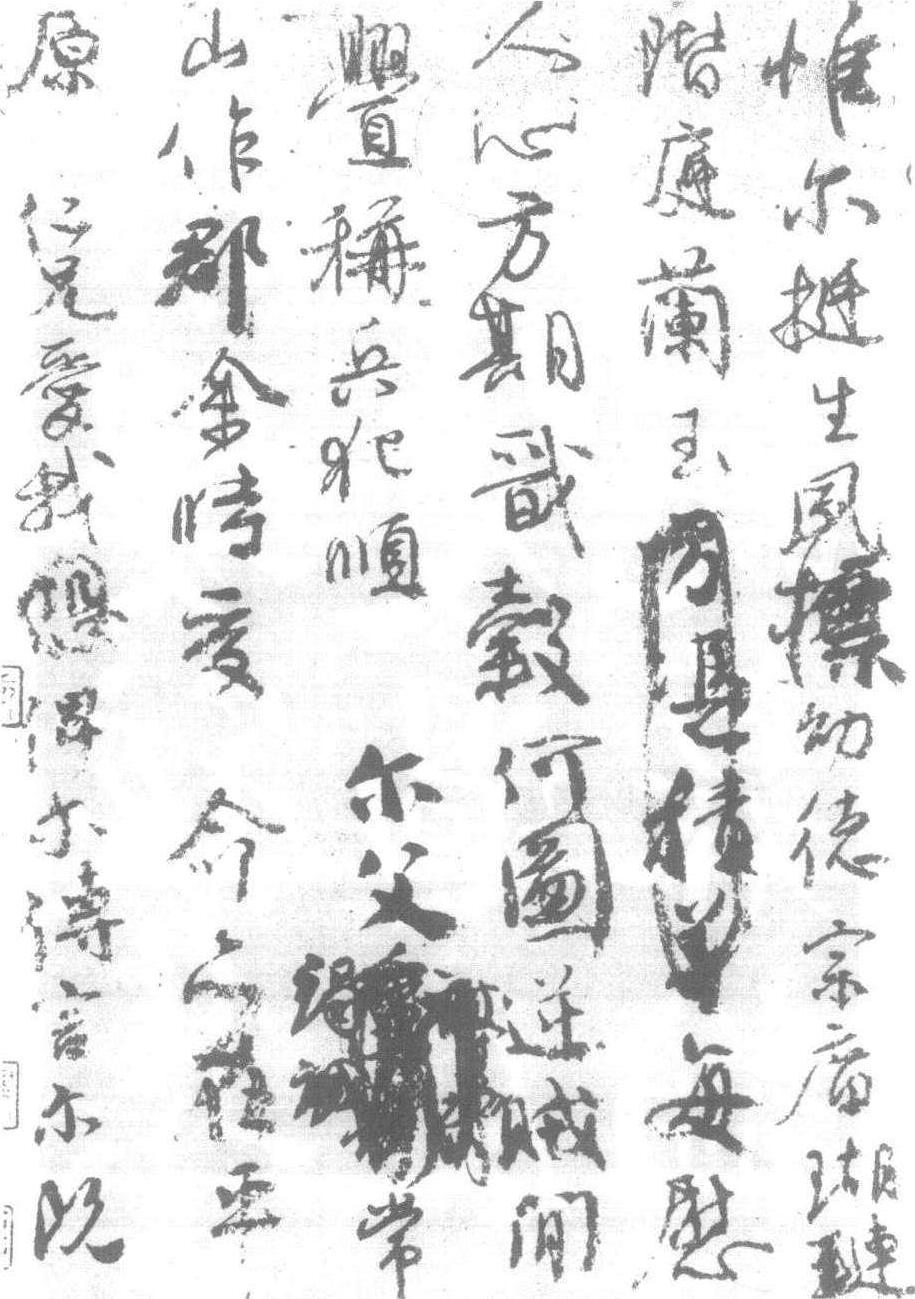 惟尔挺生夙標幼德宗廟瑚璉
階庭蘭玉方憑積善每慰
人心方期戩穀何圖逆賊間
釁稱兵犯順 尔父竭誠常
山作郡余時受 命亦在平
原 仁兄愛我俾尔傳言尔既